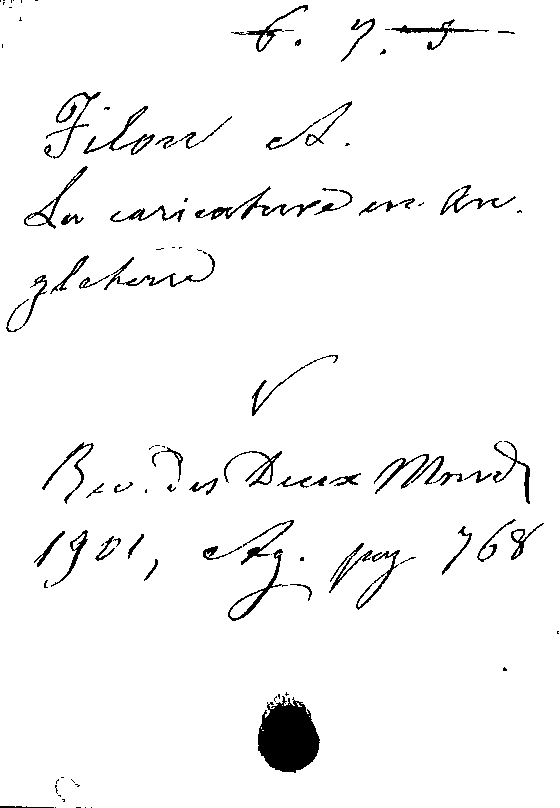 6. 7. 5
Filon A.
La caricature en An.
gleterre
V
Rev. des Deux Mond
1901, Ag. pag 768